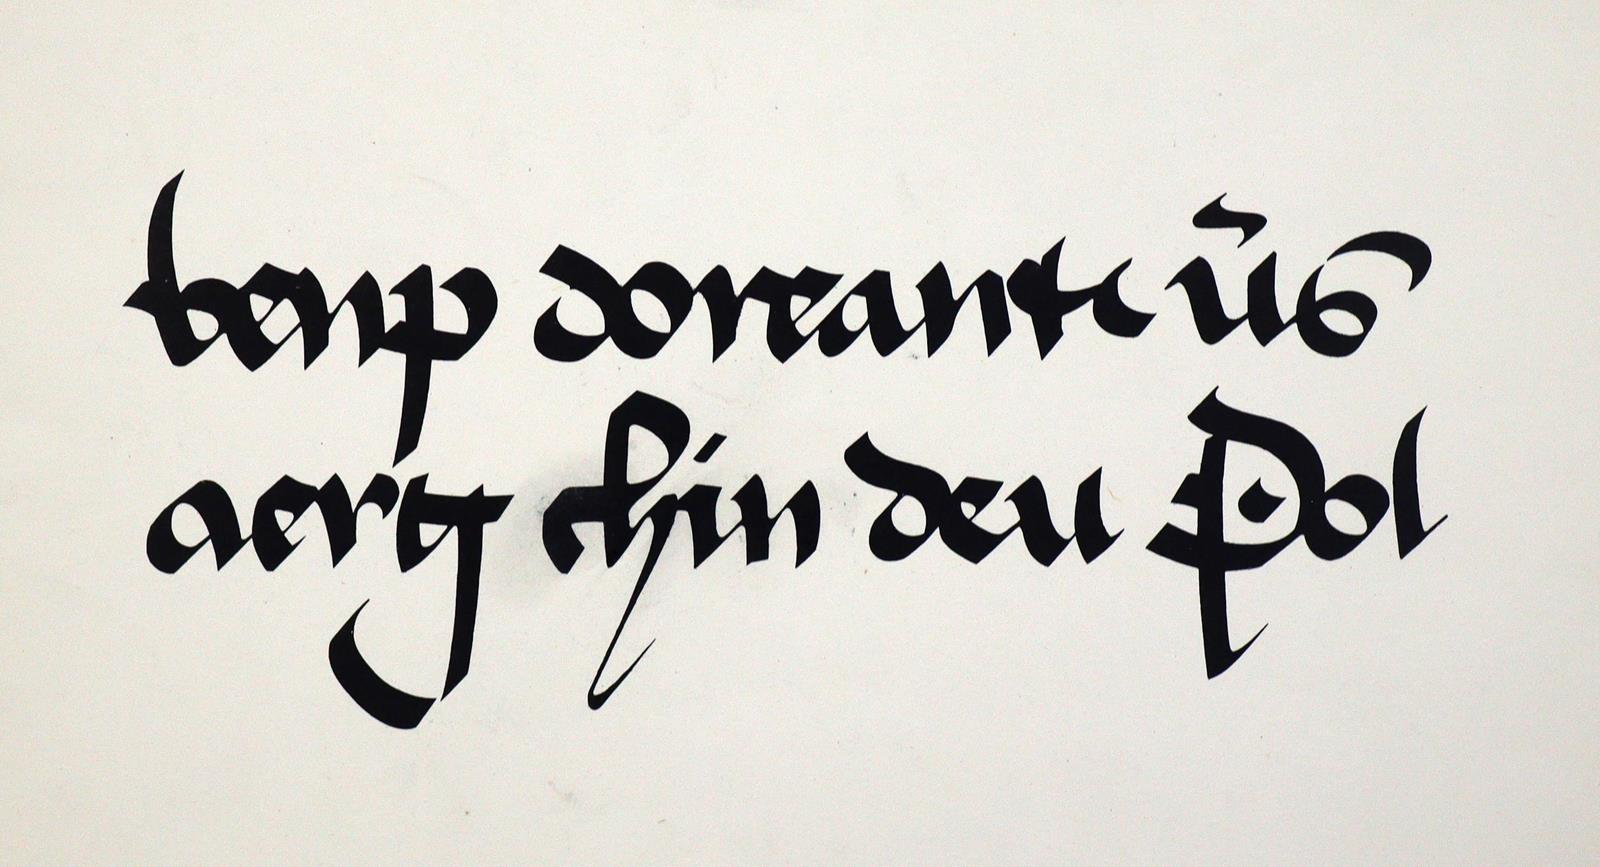 benp doreantc ũs
aerg chin deu Pol